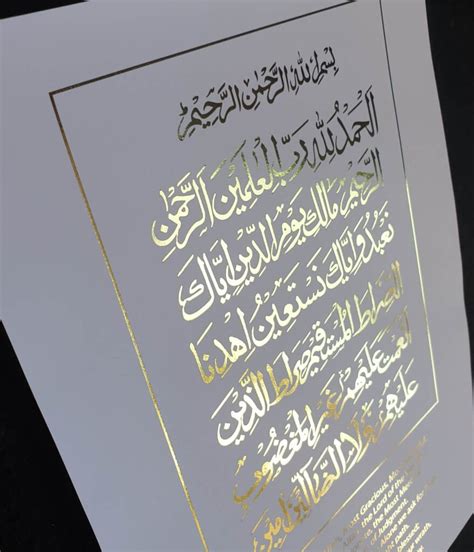 بِسْمِ اللهِ الرَّحْمٰنِ الرَّحِيْمِ
اَلْحَمْدُ لِلّٰهِ رَبِّ الْعٰلَمِيْنَ الرَّحْمٰنِ
الرَّحِيْمِ مَالِكِ يَوْمِ الدِّيْنِ اِيَّاكَ
نَعْبُدُ وَاِيَّاكَ نَسْتَعِيْنُ اِهْدِنَا
الصِّرَاطَ الْمُسْتَقِيْمَ صِرَاطَ الَّذِيْنَ
اَنْعَمْتَ عَلَيْهِمْ غَيْرِ الْمَغْضُوْبِ
عَلَيْهِمْ وَلَا الضَّآلِّيْنَ اٰمِيْن
Most Gracious, Mo
the Lord of the
the Most Merc
of Judgment.
Alone we ask for
path.